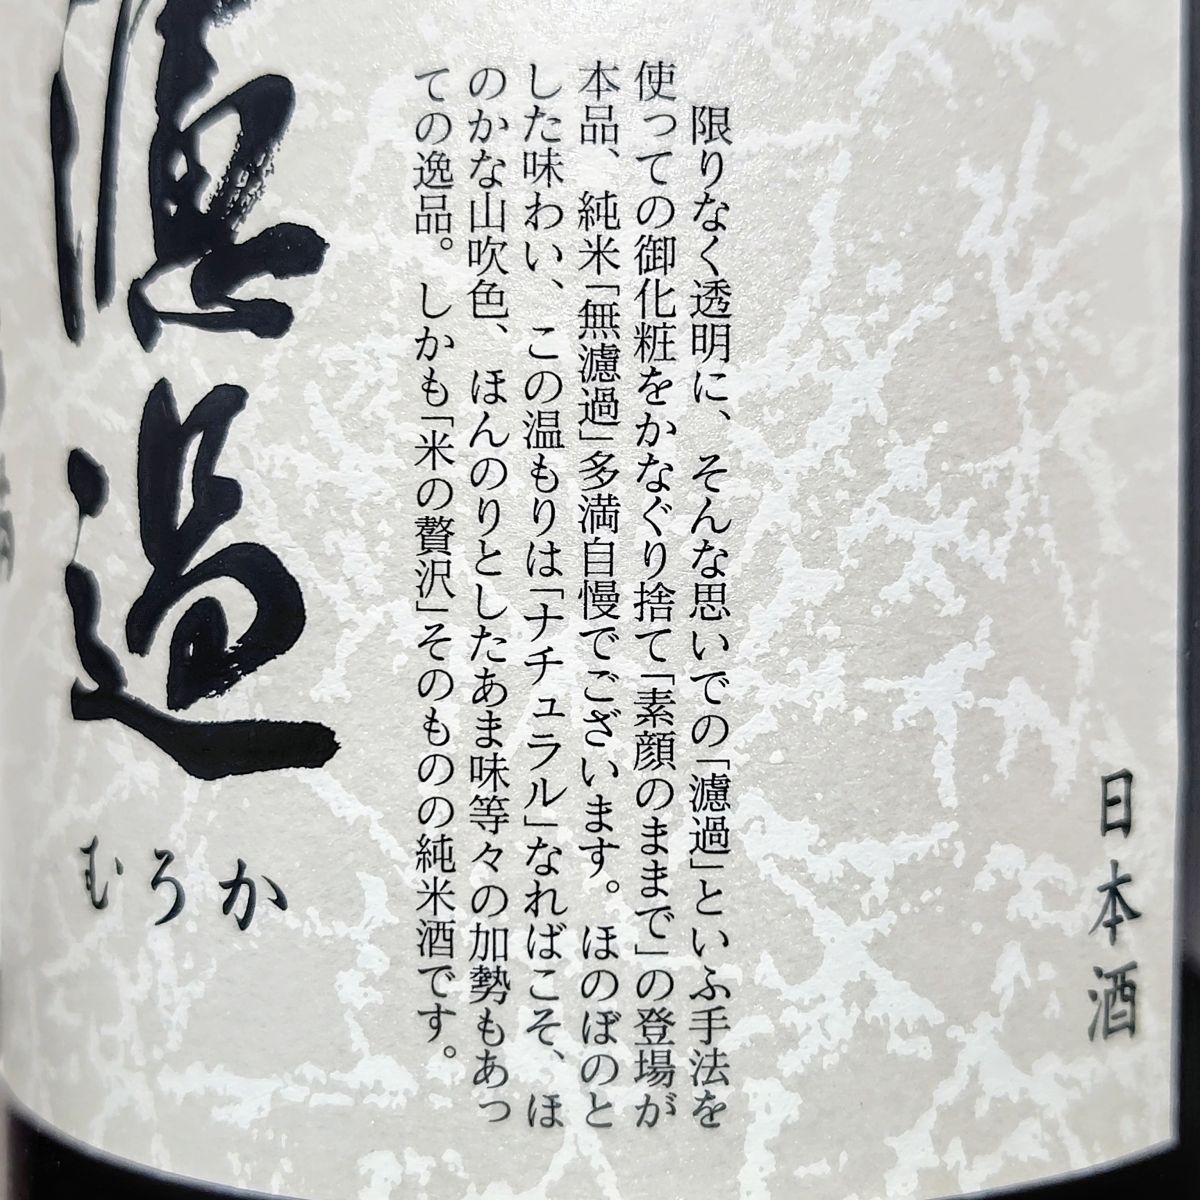 日本酒
限りなく透明に、そんな思いでの「濾過」といふ手法を
使っての御化粧をかなぐり捨て「素顔のままで」の登場が
本品、純米「無濾過」多満自慢でございます。ほのぼのと
した味わい、この温もりは「ナチュラル」なればこそ、ほ
のかな山吹色、ほんのりとしたあま味等々の加勢もあっ
ての逸品。しかも「米の贅沢」そのものの純米酒です。
濾過
むろか